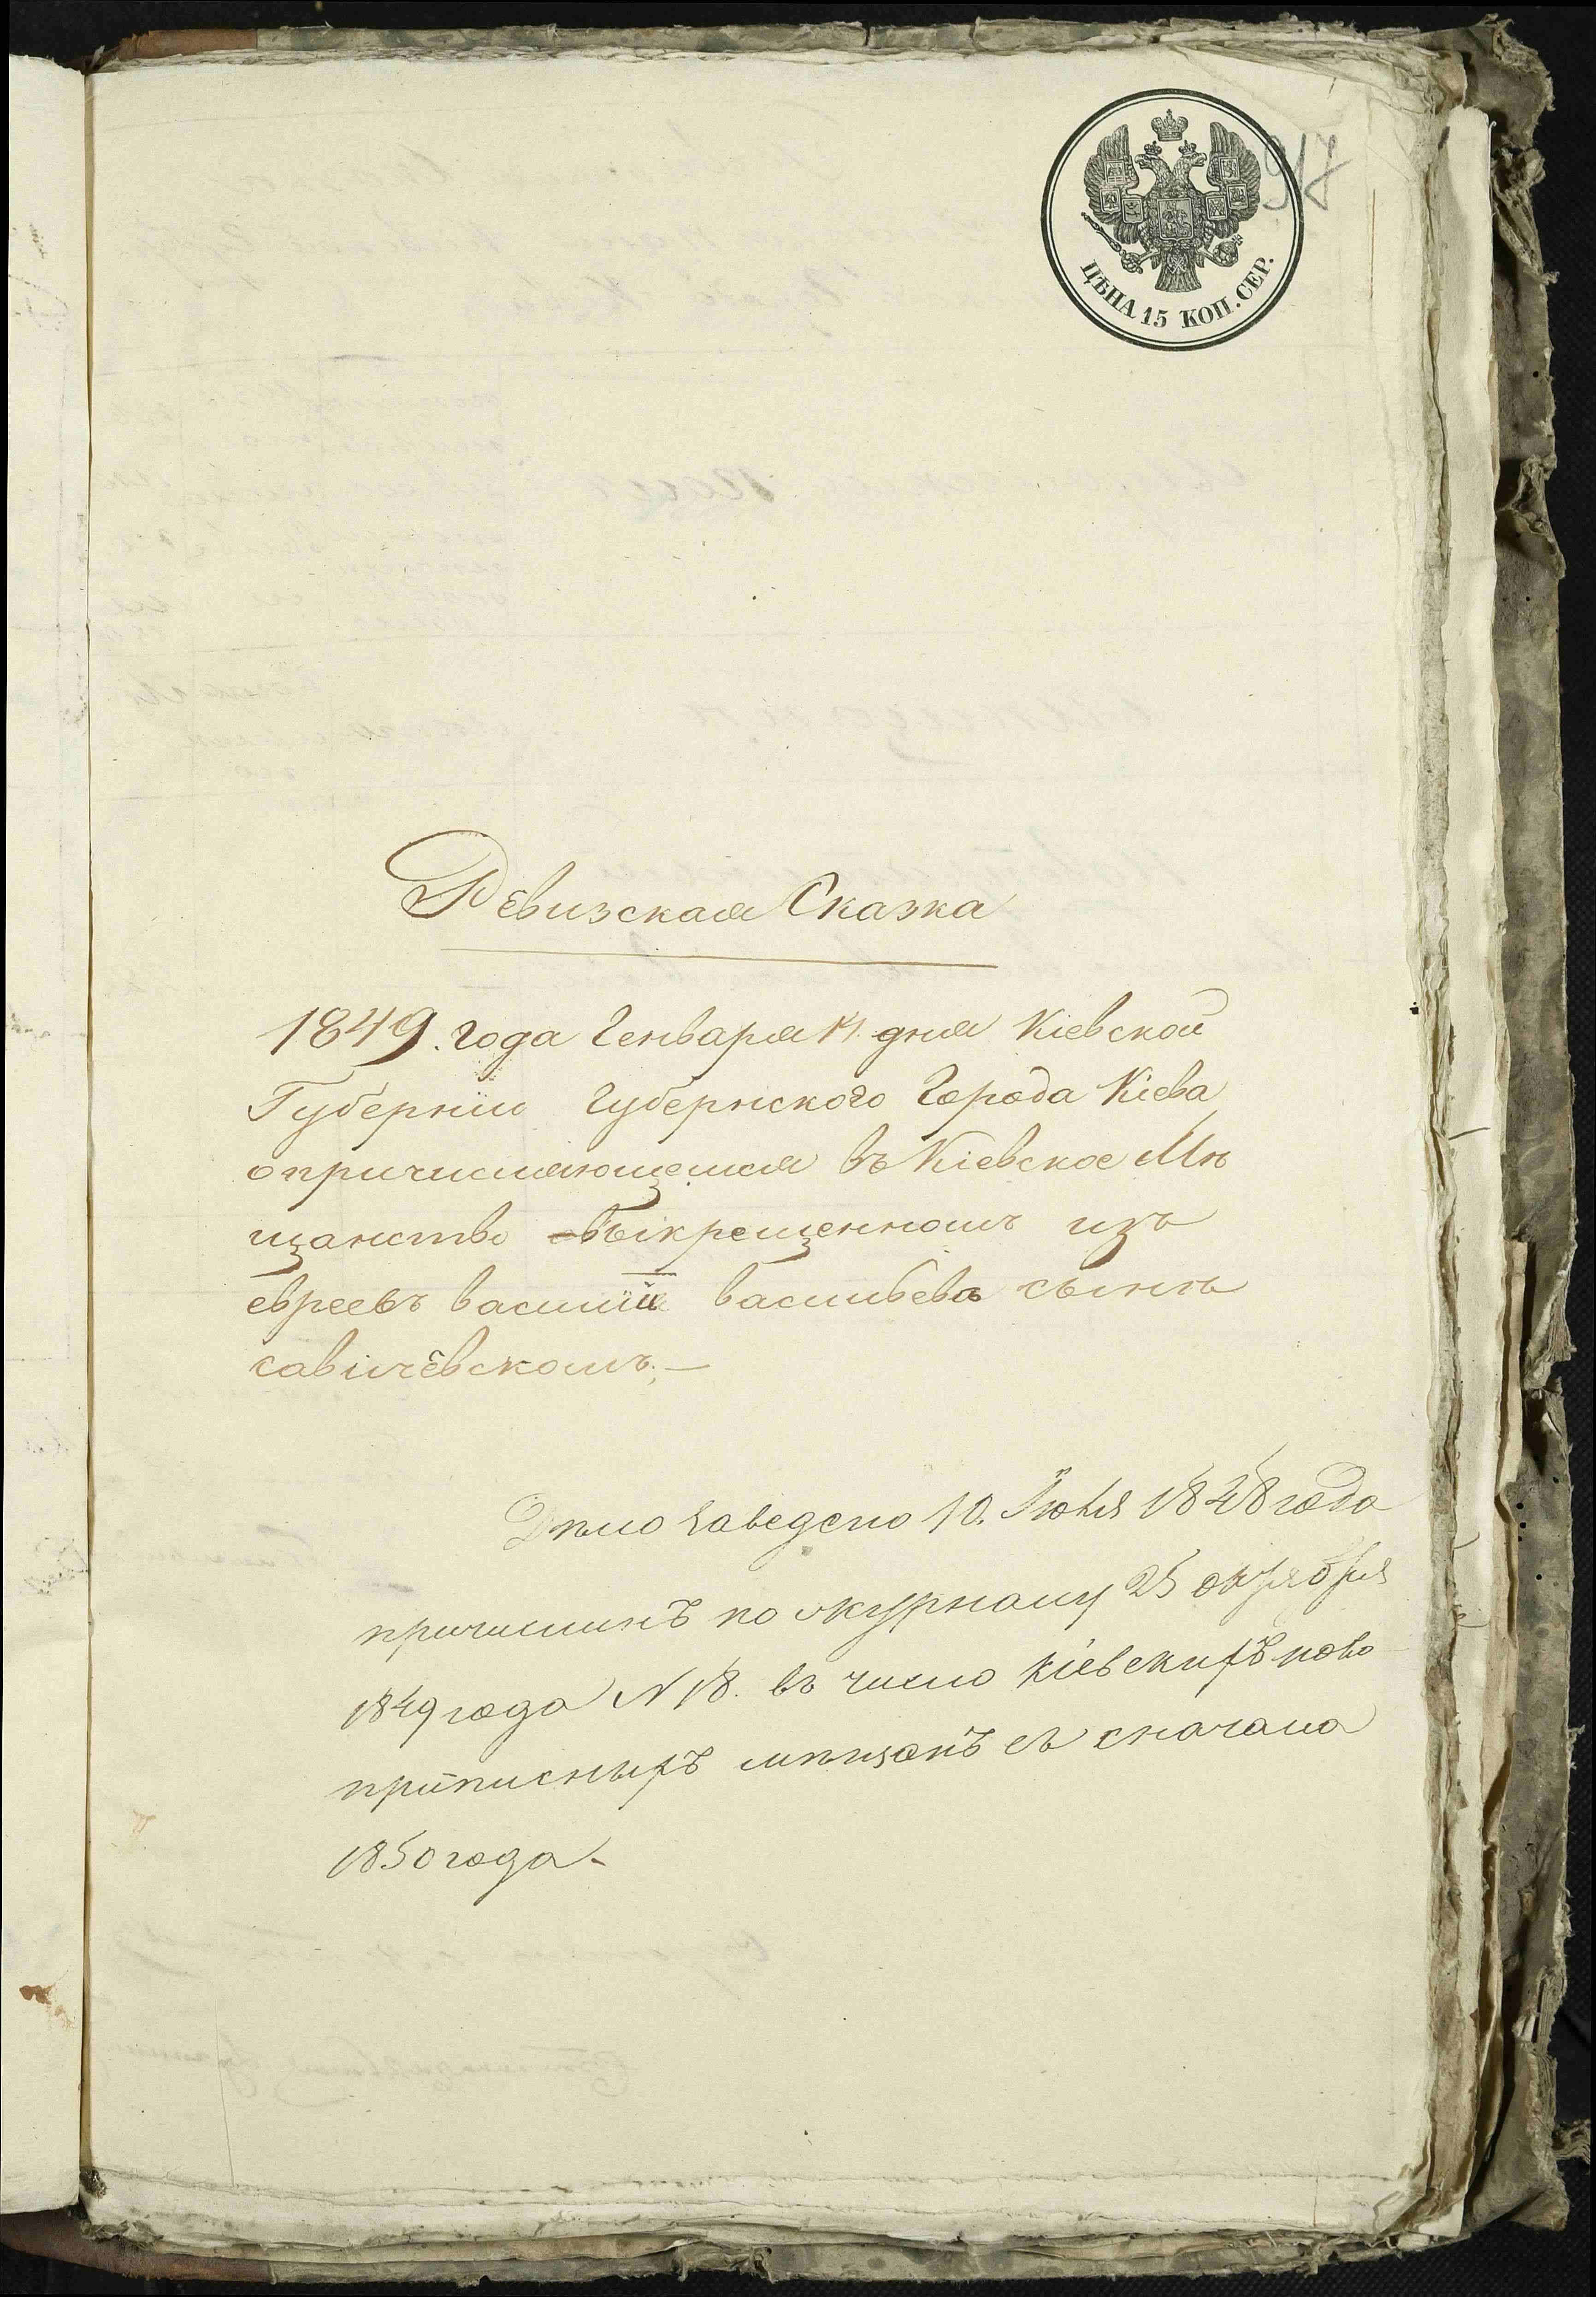 917
ЦѢНА 15 КОП. СЕР.
Ревизская Сказка
1849. года Генваря 14. дня Кіевской
Губерніи Губернского Города Кіева
о причисляющемся въ Кіевское Мѣ
щанство выкрещенномъ изъ
евреевъ василіи васильева сынѣ
савичевскомъ; —
Дѣло заведено 10. Іюля 1848 года
причисленъ по журналу 25 октября
1849 года N 18. въ число Кіевскихъ ново
приписныхъ мѣщанъ съ сначала
1850 года -